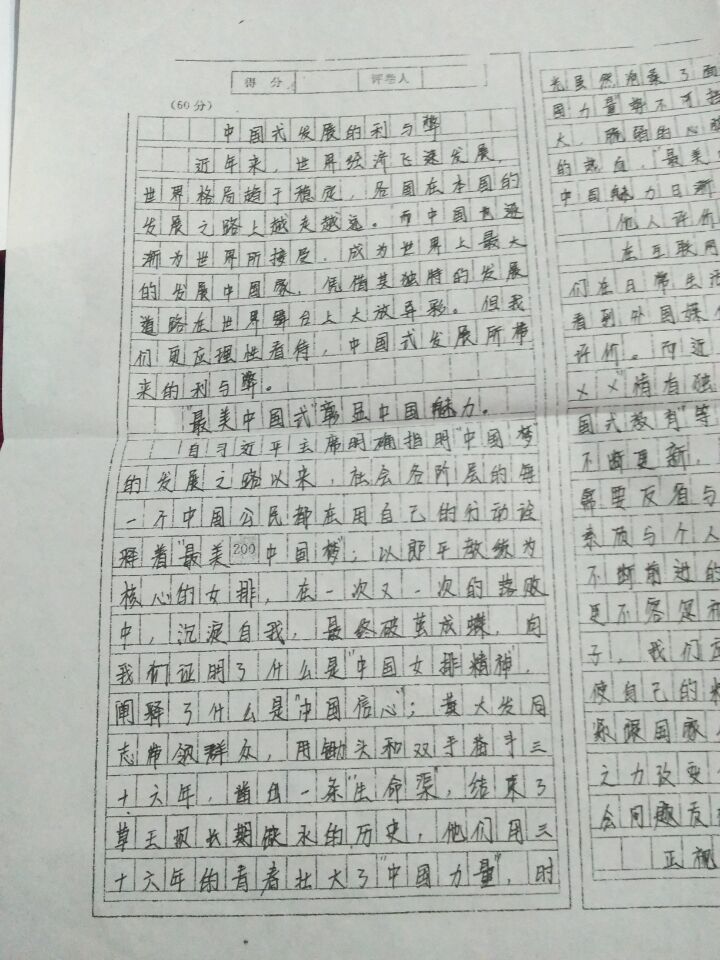 得分 评卷人
(60分)
中国式发展的利与弊
近年来，世界经济飞速发展，
世界格局趋于稳定，各国在本国的
发展之路上越走越远。而中国也逐
渐为世界所接受，成为世界上最大
的发展中国家，凭借其独特的发展
道路在世界舞台上大放异彩。但我
们更应理性看待，中国式发展所带
来的利与弊。
"最美中国式"彰显中国魅力。
自习近平主席明确指明"中国梦"
的发展之路以来，社会各阶层的每
一个中国公民都在用自己的行动诠
释着"最美中国梦"；以郎平教练为
200
核心的女排，在一次又一次的落败
中，沉淀自我，最终破茧成蝶，向
我们证明了什么是"中国女排精神"，
阐释了什么是"中国信心"；黄大发同
志带领群众，用锄头和双手奋斗三
十六年，凿出一条"生命渠"，结束了
草王坝长期缺水的历史，他们用三
十六年的青春壮大了"中国力量"，时
光虽然消柔了面
国力量"等不可
大，脆弱的心
的热血，"最美
中国魅力日渐
他人评价
在互联网
们在日常生活
看到外国媒
评价。而近
××"情有独
国式教育"等
不断更新，
需要反省与
素质与个人
不断前进的
更不容忽视
子，我们应
使自己的
紧跟国家
之力改变
会问题友
正视